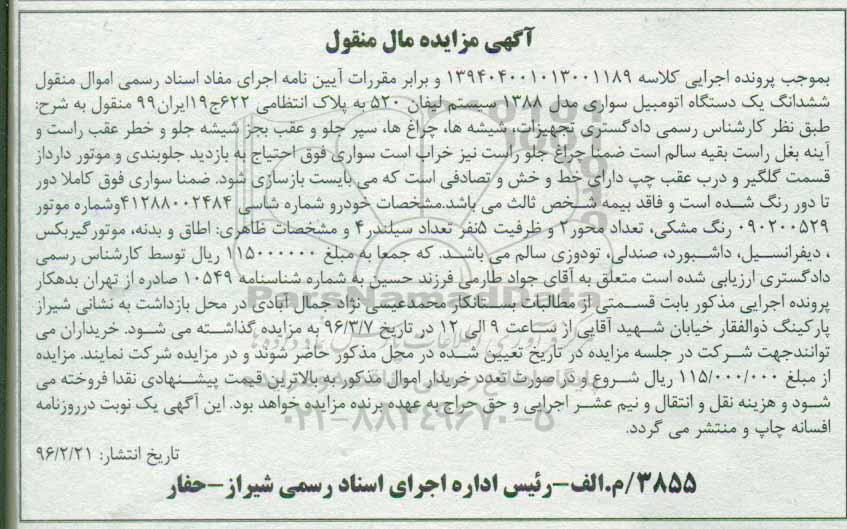 آگهی مزایده مال منقول
بموجب پرونده اجرایی کلاسه ۱۳۹۴۰۴۰۰۱۰۱۳۰۰۱۱۸۹ و برابر مقررات آیین نامه اجرای مفاد اسناد رسمی اموال منقول
ششدانگ یک دستگاه اتومبیل سواری مدل ۱۳۸۸ سیستم لیفان ۵۲۰ به پلاک انتظامی ۶۲۲ج۱۹ایران۹۹ منقول به شرح:
طبق نظر کارشناس رسمی دادگستری تجهیزات، شیشه ها، چراغ ها، سپر جلو و عقب بجز شیشه جلو و خطر عقب راست و
آینه بغل راست بقیه سالم است ضمنا چراغ جلو راست نیز خراب است سواری فوق احتیاج به بازدید جلوبندی و موتور دارداز
قسمت گلگیر و درب عقب چپ دارای خط و خش و تصادفی است که می بایست بازسازی شود. ضمنا سواری فوق کاملا دور
تا دور رنگ شده است و فاقد بیمه شخص ثالث می باشد.مشخصات خودرو شماره شاسی ۴۱۲۸۸۰۰۲۴۸۴وشماره موتور
۰۹۰۲۰۰۵۲۹ رنگ مشکی، تعداد محور۲ و ظرفیت ۵نفر تعداد سیلندر۴ و مشخصات ظاهری: اطاق و بدنه، موتورگیربکس
، دیفرانسیل، داشبورد، صندلی، تودوزی سالم می باشد. که جمعا به مبلغ ۱۱۵۰۰۰۰۰۰ ریال توسط کارشناس رسمی
دادگستری ارزیابی شده است متعلق به آقای جواد طارمی فرزند حسین به شماره شناسنامه ۱۰۵۴۹ صادره از تهران بدهکار
پرونده اجرایی مذکور بابت قسمتی از مطالبات بستانکار محمدعیسی نژاد جمال آبادی در محل بازداشت به نشانی شیراز
پارکینگ ذوالفقار خیابان شهید آقایی از ساعت ۹ الی ۱۲ در تاریخ ۹۶/۳/۷ به مزایده گذاشته می شود. خریداران می
توانندجهت شرکت در جلسه مزایده در تاریخ تعیین شده در محل مذکور حاضر شوند و در مزایده شرکت نمایند. مزایده
از مبلغ ۱۱۵/۰۰۰/۰۰۰ ریال شروع و در صورت تعدد خریدار اموال مذکور به بالاترین قیمت پیشنهادی نقدا فروخته می
شود و هزینه نقل و انتقال و نیم عشر اجرایی و حق حراج به عهده برنده مزایده خواهد بود. این آگهی یک نوبت درروزنامه
افسانه چاپ و منتشر می گردد.
تاریخ انتشار: ۹۶/۲/۲۱
۳۸۵۵/م.الف-رئیس اداره اجرای اسناد رسمی شیراز-حفار
ParsNamadData
۰۲۱-۸۸۳۴۹۶۷۰-۵